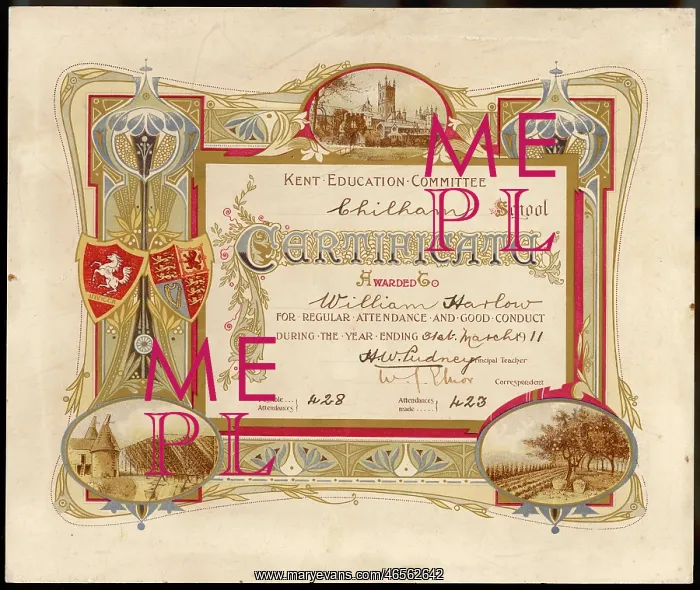 KENT · EDUCATION · COMMITTEE
Chilham School
CERTIFICATE
AWARDED TO
William Harlow
FOR REGULAR ATTENDANCE AND GOOD CONDUCT
DURING THE YEAR ENDING 31st March 1911
H W Pudney Principal Teacher
Correspondent
Attendances 428 Attendances made 423
ME
PL
ME
PL
www.maryevans.com/46562642